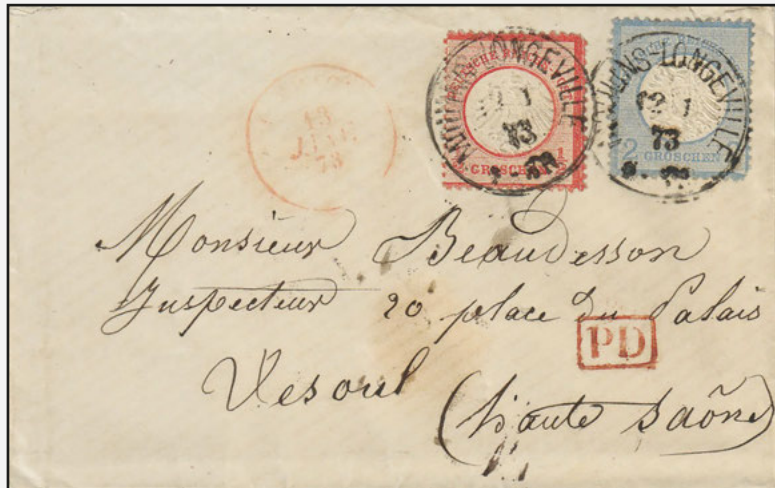 MOULINS-LONGEVILLE
12 1
73
1
GROSCHEN
MOULINS-LONGEVILLE
12 1
73
2
GROSCHEN
13
JANV
73
Monsieur Beaudesson
Inspecteur 20 place du Palais
PD
Vesoul (haute Saône)